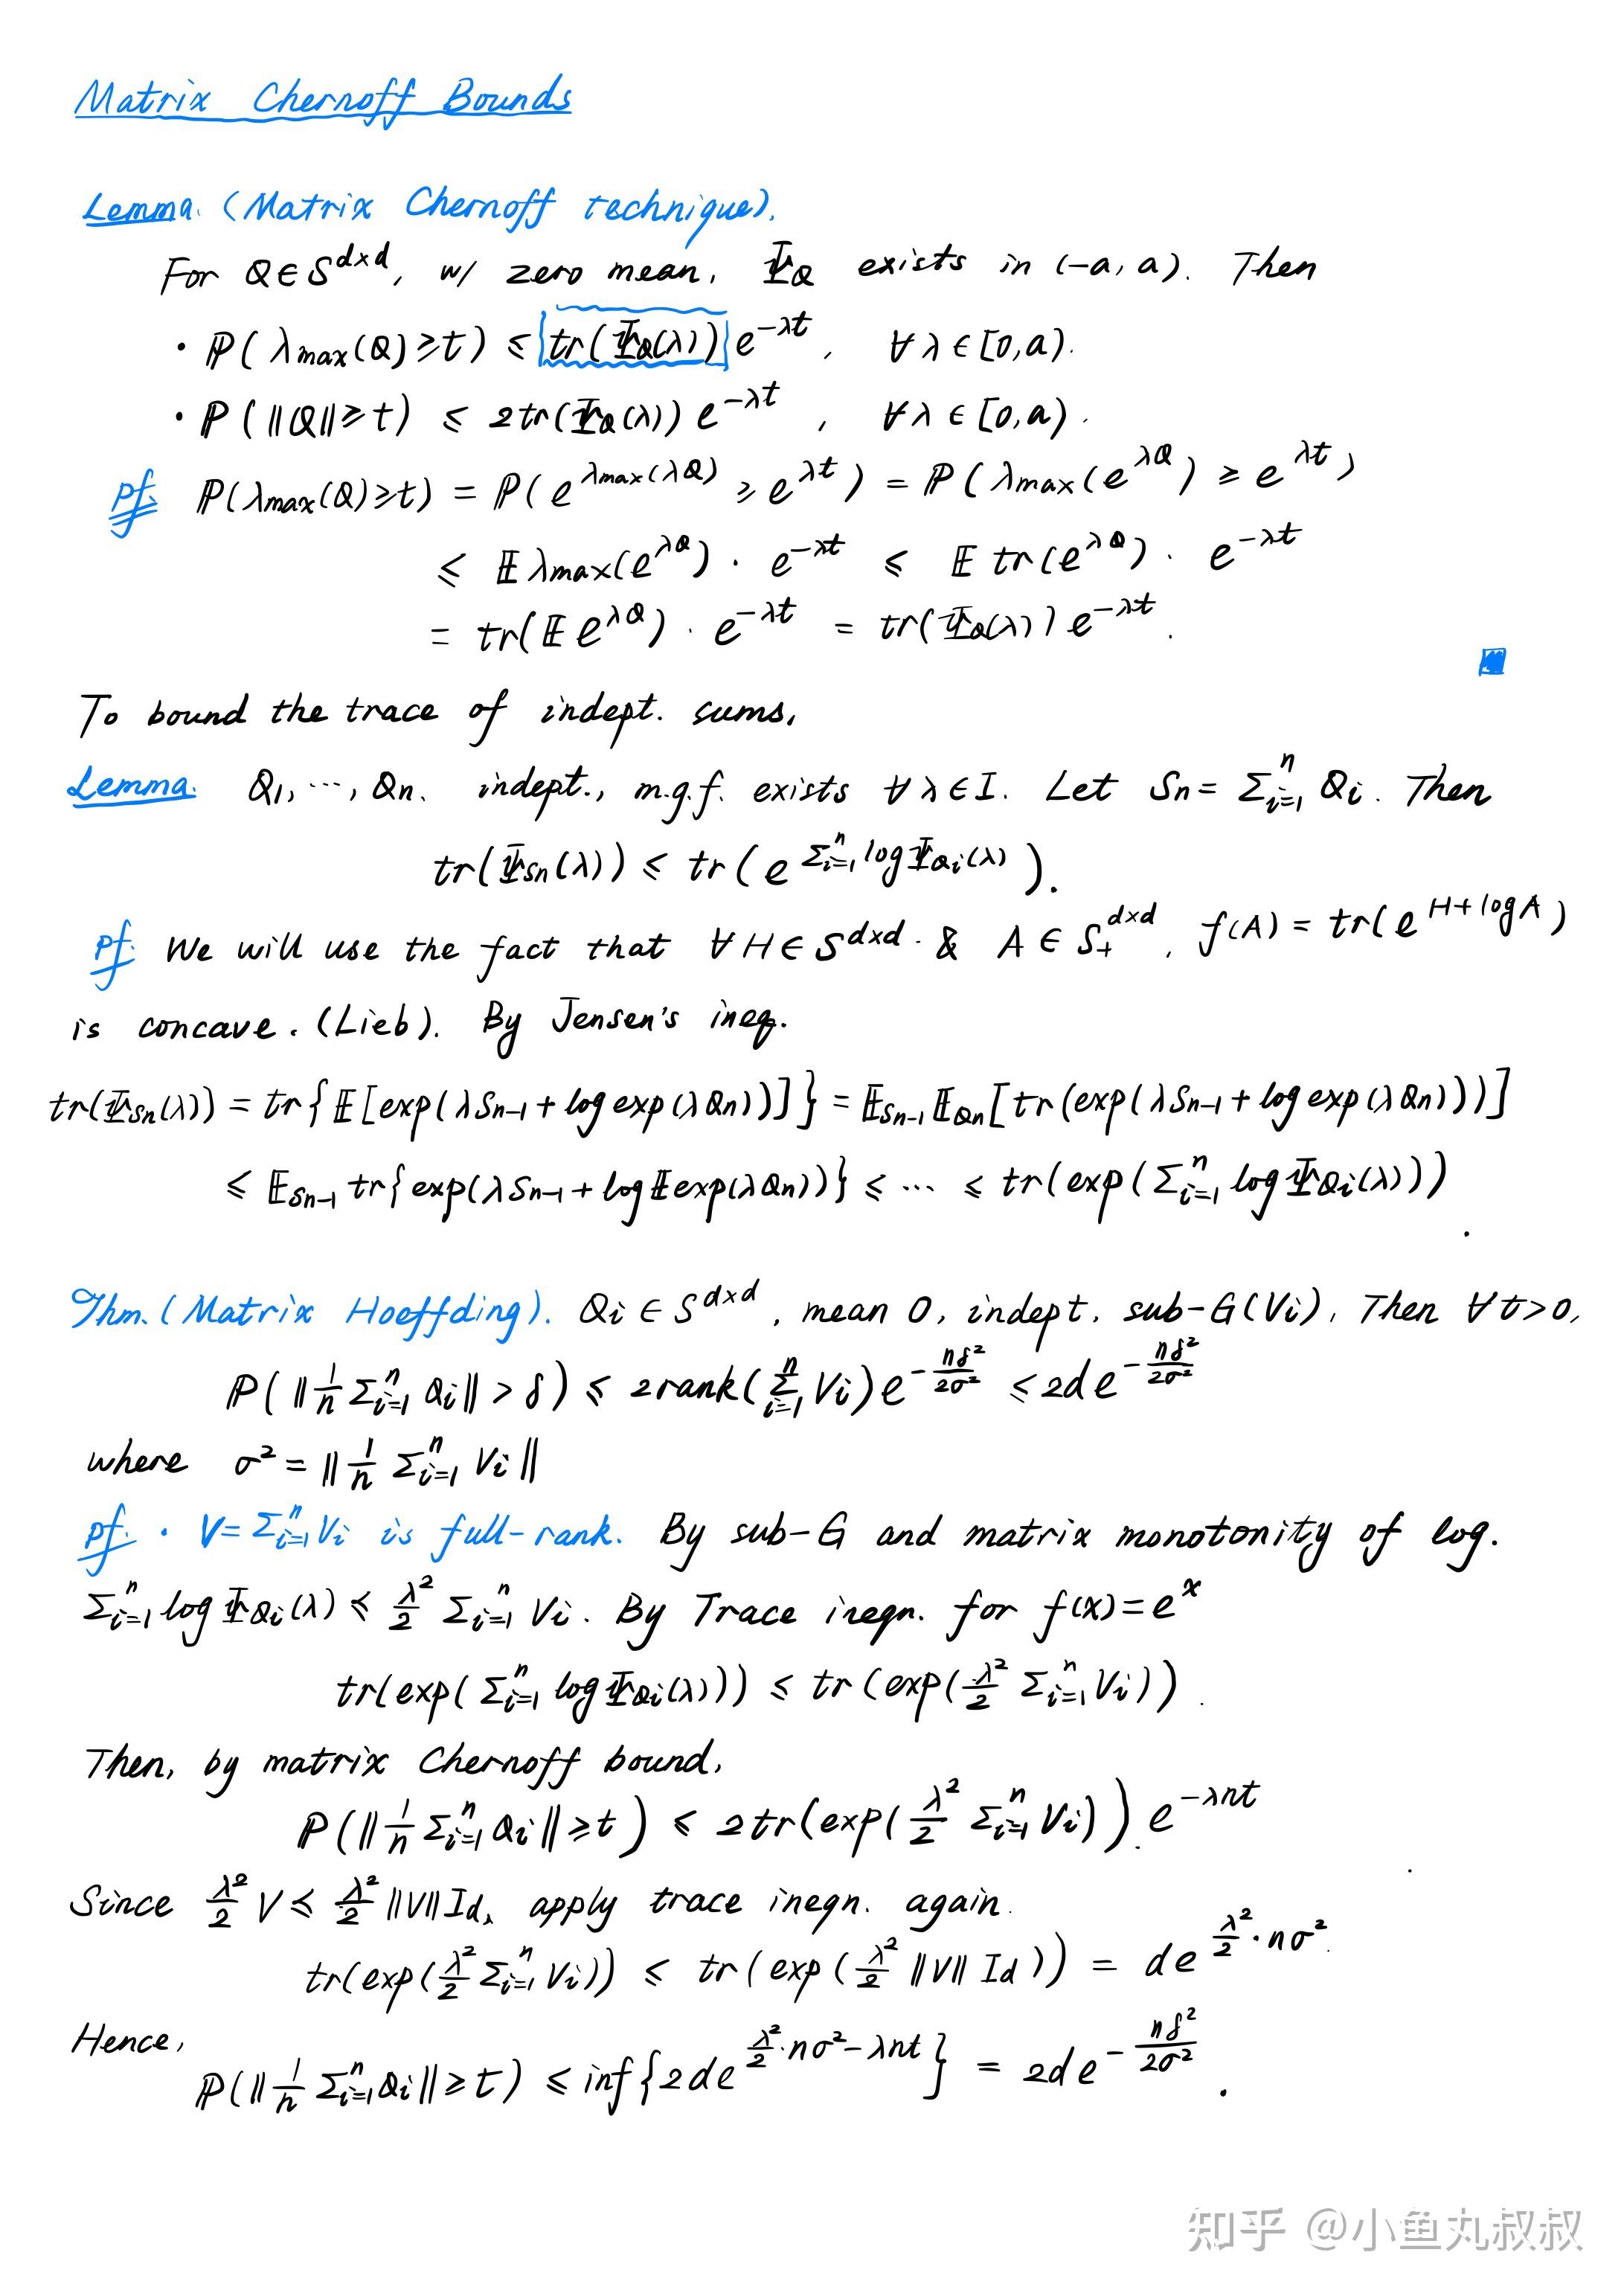 Matrix Chernoff Bounds
Lemma. (Matrix Chernoff technique).
For Q ∈ S^{d×d}, w/ zero mean, Ψ_Q exists in (-a, a). Then
· ℙ(λ_max(Q) ≥ t) ≤ tr(Ψ_Q(λ)) e^{-λt}, ∀ λ ∈ [0, a).
· ℙ(‖Q‖ ≥ t) ≤ 2tr(Ψ_Q(λ)) e^{-λt}, ∀ λ ∈ [0, a).
pf. ℙ(λ_max(Q) ≥ t) = ℙ(e^{λ_max(λQ)} ≥ e^{λt}) = ℙ(λ_max(e^{λQ}) ≥ e^{λt})
≤ 𝔼 λ_max(e^{λQ}) · e^{-λt} ≤ 𝔼 tr(e^{λQ}) · e^{-λt}
= tr(𝔼 e^{λQ}) · e^{-λt} = tr(Ψ_Q(λ)) e^{-λt}.
To bound the trace of indept. sums,
Lemma. Q_1, ..., Q_n. indept., m.g.f. exists ∀ λ ∈ I. Let S_n = Σ_{i=1}^n Q_i. Then
tr(Ψ_{S_n}(λ)) ≤ tr(e^{Σ_{i=1}^n log Ψ_{Q_i}(λ)}).
pf. We will use the fact that ∀ H ∈ S^{d×d} & A ∈ S_+^{d×d}, f(A) = tr(e^{H + log A})
is concave. (Lieb). By Jensen's ineq.
tr(Ψ_{S_n}(λ)) = tr{𝔼[exp(λS_{n-1} + log exp(λQ_n))]} = 𝔼_{S_{n-1}} 𝔼_{Q_n}[tr(exp(λS_{n-1} + log exp(λQ_n)))]
≤ 𝔼_{S_{n-1}} tr{exp(λS_{n-1} + log 𝔼 exp(λQ_n))} ≤ ... ≤ tr(exp(Σ_{i=1}^n log Ψ_{Q_i}(λ)))
Thm. (Matrix Hoeffding). Q_i ∈ S^{d×d}, mean 0, indept. sub-G(V_i), Then ∀ t > 0,
ℙ(‖\frac{1}{n} Σ_{i=1}^n Q_i‖ > δ) ≤ 2rank(Σ_{i=1}^n V_i) e^{-\frac{nδ²}{2σ²}} ≤ 2d e^{-\frac{nδ²}{2σ²}}
where σ² = ‖\frac{1}{n} Σ_{i=1}^n V_i‖
pf. · V = Σ_{i=1}^n V_i is full-rank. By sub-G and matrix monotonity of log.
Σ_{i=1}^n log Ψ_{Q_i}(λ) ≼ \frac{λ²}{2} Σ_{i=1}^n V_i. By Trace ineqn. for f(x) = e^x
tr(exp(Σ_{i=1}^n log Ψ_{Q_i}(λ))) ≤ tr(exp(\frac{λ²}{2} Σ_{i=1}^n V_i)).
Then, by matrix Chernoff bound,
ℙ(‖\frac{1}{n} Σ_{i=1}^n Q_i‖ ≥ t) ≤ 2tr(exp(\frac{λ²}{2} Σ_{i=1}^n V_i)) e^{-λnt}
Since \frac{λ²}{2} V ≼ \frac{λ²}{2} ‖V‖ I_d, apply trace ineqn. again.
tr(exp(\frac{λ²}{2} Σ_{i=1}^n V_i)) ≤ tr(exp(\frac{λ²}{2} ‖V‖ I_d)) = d e^{\frac{λ²}{2} · nσ²}.
Hence,
ℙ(‖\frac{1}{n} Σ_{i=1}^n Q_i‖ ≥ t) ≤ inf{2d e^{\frac{λ²}{2} · nσ² - λnt}} = 2d e^{-\frac{nδ²}{2σ²}}.
知乎 @小鱼丸叔叔